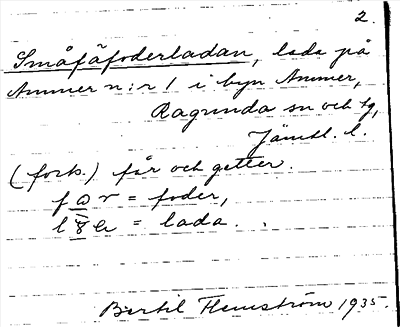 2.
Småfäfoderladan, lada på
Ammer n:r 1 i byn Ammer,
Ragunda sn och tg,
Jämtl. l.
(forts.) får och getter.
= foder,
= lada.
Bertil Flemström 1935.